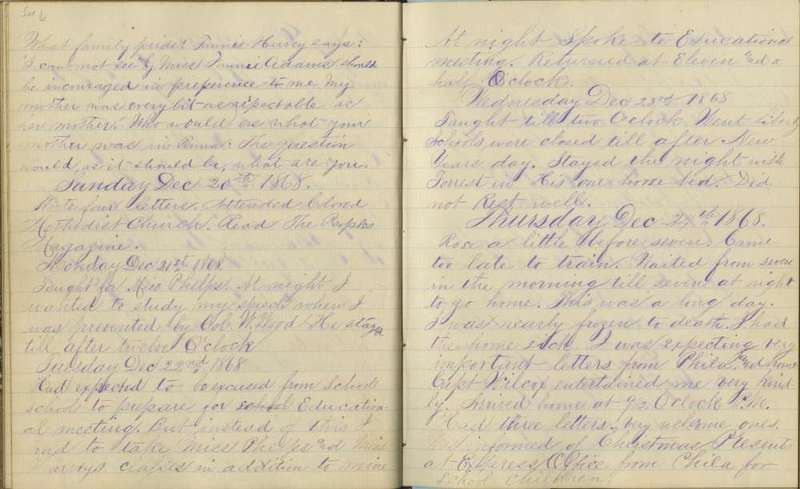 What family pride! Finnie Harvey says:
"I can not see why Miss Finnie Adams should
be incouraged in preference to me My
mother was every bit as respectable as
her mother. Who would ask what your
mother was in Penna? The question
would, as it should be, what are you.
Sunday Dec 20th 1868.
Wrote four letters. Attended Colored
Methodist Church. Read The Peoples
Magazine.
Monday Dec 21st 1868
Taught for Miss Phelps. At night I
wanted to study my speech when I
was prevented by Col. W. Hood He stayed
till after twelve O'clock
Tuesday Dec 22nd 1868
Had expected to be excused from school
school to prepare for school Education-
al meeting. But instead of this I
had to take Miss Phelps and Miss
Harveys classes in addition to mine
At night Spoke to Educational
meeting. Returned at Eleven and a
half O'clock.
Wednesday Dec 23rd 1868
Taught till two O'clock. Went
Schools were closed till after New
Years day. Stayed the night with
Forrest in His one horse bed. Did
not Rest well.
Thursday Dec 24th 1868.
Rose a little before seven. Came
too late to train. Waited from seven
in the morning till seven at night
to go home. This was a long day.
I was nearly frozen to death. I had
the home sick. I was expecting very
important letters from Phila. and home
Capt Wilcox entertained me very kind
ly. Arrived home at 9½ O'clock P.M.
Had three letters, very welcome ones.
Was informed of Christmas Present
at Express Office from Phila for
School children